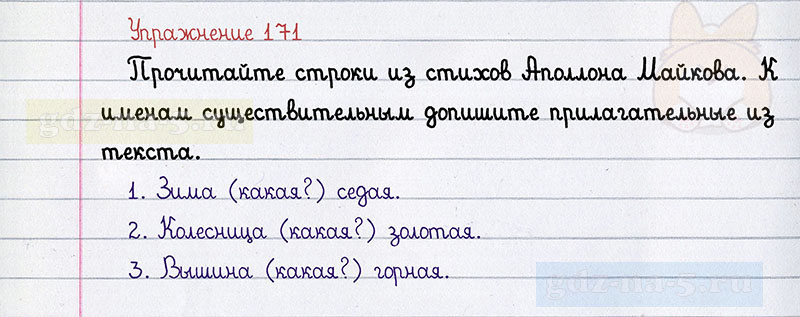 Упражнение 171
Прочитайте строки из стихов Аполлона Майкова. К
именам существительным допишите прилагательные из
текста.
1. Зима (какая?) седая.
2. Колесница (какая?) золотая.
3. Вышина (какая?) горная.
gdz-na-5.ru
gdz-na-5.ru